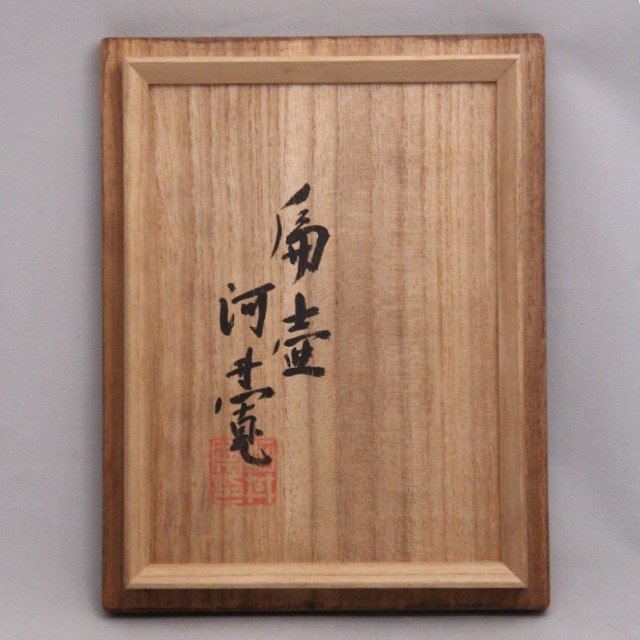 扁壷
河井寛